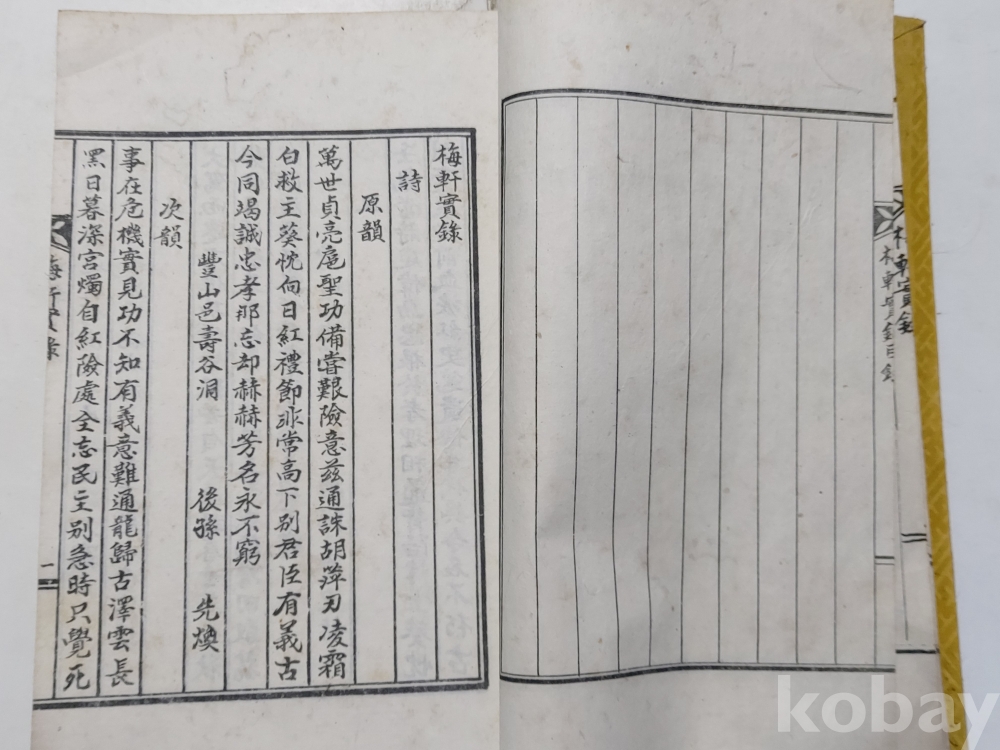 梅軒實錄
詩
原韻
萬世貞亮扈聖功備嘗艱險意玆通誅胡萍刃凌霜
白救主葵忱向日紅禮節非常高下別君臣有義古
今同竭誠忠孝那忘却赫赫芳名永不窮
豐山邑壽谷洞 後孫 先煥
次韻
事在危機實見功不知有義意難通龍歸古澤雲長
黑日暮深宮燭自紅險處全忘民主別急時只覺死
梅軒實錄
一
梅軒實錄目錄
梅軒實錄
kobay